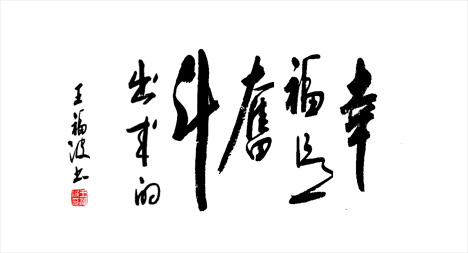 幸
福是
奮
斗
出来的
王福波书